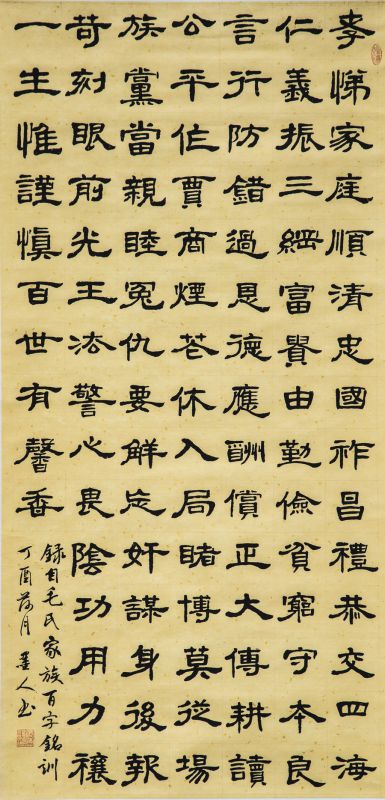 孝悌家庭順清忠國祚昌禮恭交四海
仁義振三綱富貴由勤儉貧窮守本良
言行防錯過恩德應酬償正大傳耕讀
公平作賈商煙花休入局賭博莫從場
族黨當親睦冤仇要解忘奸謀身後報
苛刻眼前光王法警心畏陰功用力禳
一生惟謹慎百世有馨香
録自毛氏家族百字銘訓
丁酉荷月墨人书